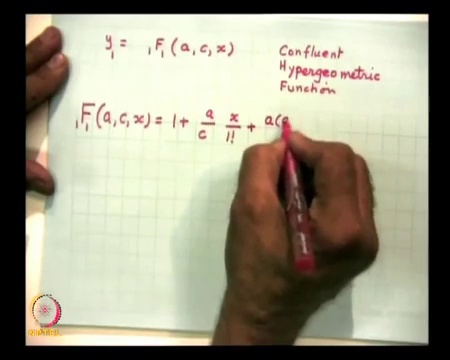 y₁ = ₁F₁ (a, c, x)
Confluent
Hypergeometric
Function
₁F₁(a, c, x) = 1 + a/c x/1! + a(a
NPTEL